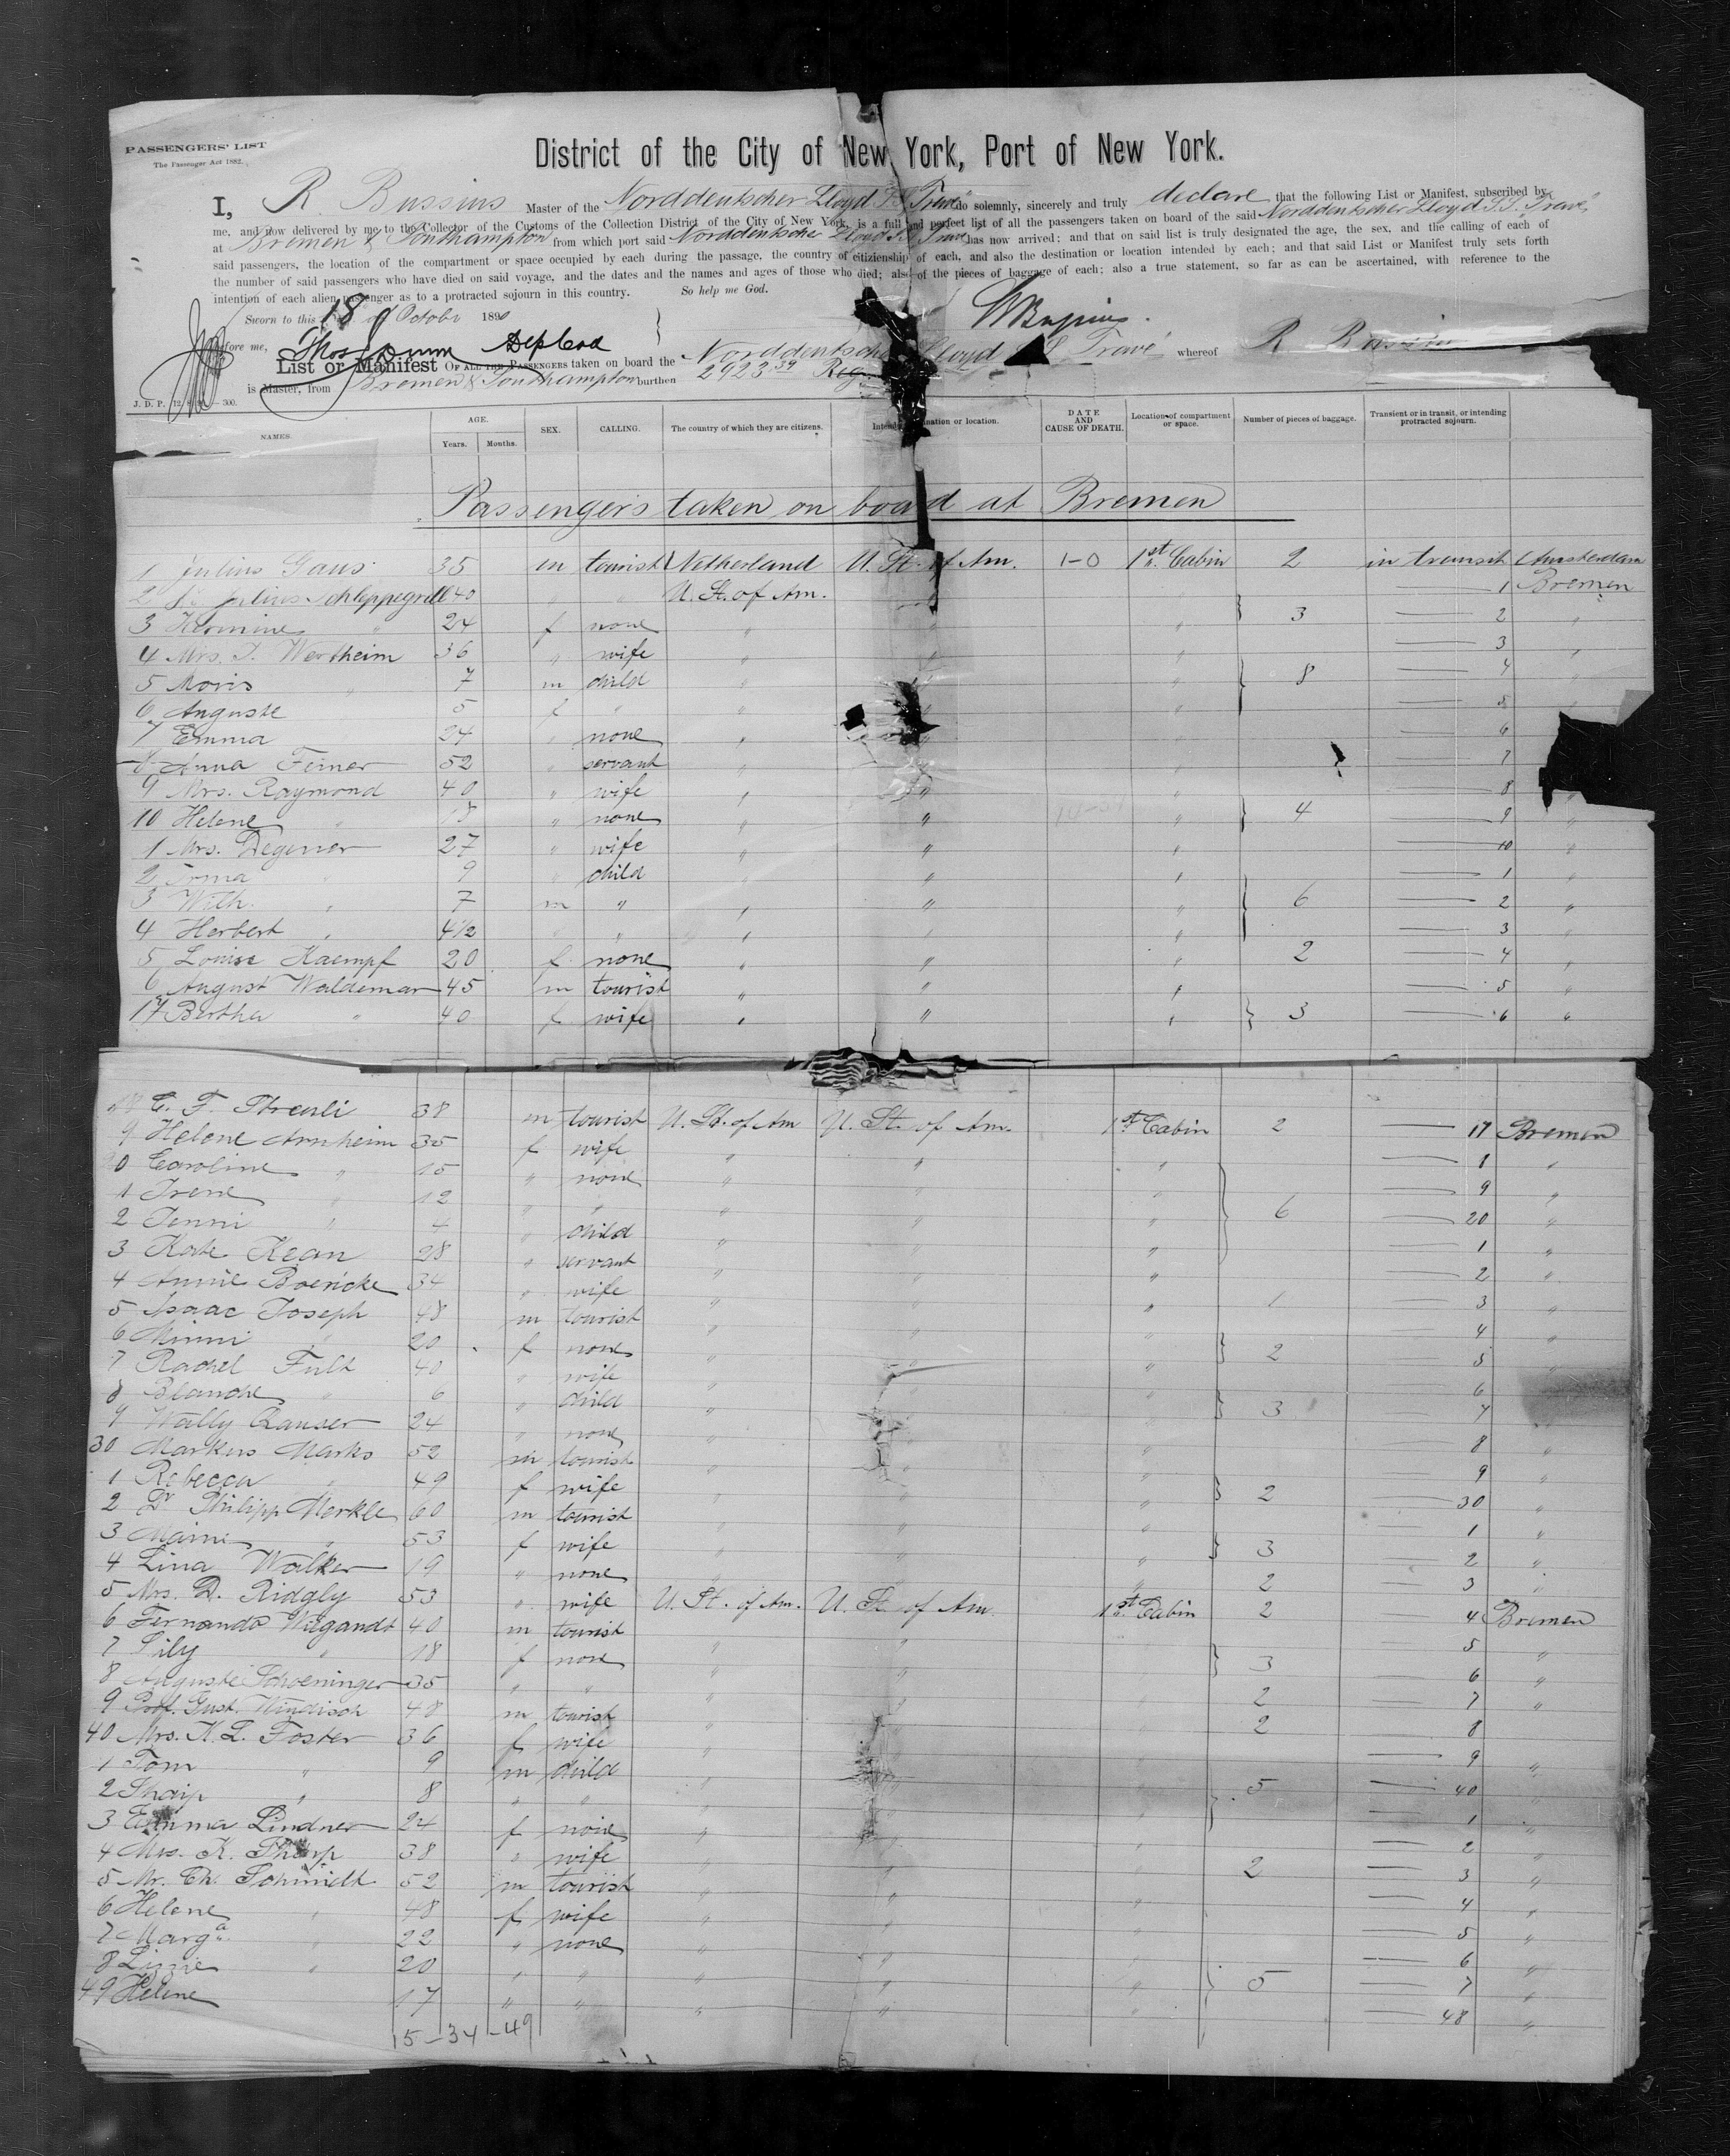 PASSENGERS' LIST
The Passenger Act 1882.
District of the City of New York, Port of New York.
I, R Bussius Master of the Norddeutscher Lloyd S.S. "Trave" do solemnly, sincerely and truly declare that the following List or Manifest, subscribed by
me, and now delivered by me to the Collector of the Customs of the Collection District of the City of New York, is a full and perfect list of all the passengers taken on board of the said Norddeutscher Lloyd S.S. "Trave"
at Bremen & Southampton from which port said Norddeutscher Lloyd S.S. Trave has now arrived; and that on said list is truly designated the age, the sex, and the calling of each of
said passengers, the location of the compartment or space occupied by each during the passage, the country of citizenship of each, and also the destination or location intended by each; and that said List or Manifest truly sets forth
the number of said passengers who have died on said voyage, and the dates and the names and ages of those who died; also of the pieces of baggage of each; also a true statement, so far as can be ascertained, with reference to the
intention of each alien passenger as to a protracted sojourn in this country. So help me God.
Sworn to this 18 of October 1890
before me, Thos Dunn Dep Coll
R Bussius
List or Manifest OF ALL THE PASSENGERS taken on board the Norddeutscher Lloyd S.S. Trave whereof R Bussius
is Master, from Bremen & Southampton burthen 2923 39 Reg
J. D. P. 300.
NAMES. AGE. Years. Months. SEX. CALLING. The country of which they are citizens. Intended destination or location. DATE AND CAUSE OF DEATH. Location of compartment or space. Number of pieces of baggage. Transient or in transit, or intending protracted sojourn.
Passengers taken on board at Bremen
1 Julius Gans 35 m tourist Netherland U. St. of Am. 1-0 1st Cabin 2 in transit Amsterdam
2 Julius Schleppegrell 40 " " U. St. of Am. 1 Bremen
3 Hermine " 24 f none " " " 3 2 "
4 Mrs. S. Wertheim 36 " wife " " " 3 "
5 Moris " 7 m child " " 8 4
6 Auguste 5 f " " " 5
7 Emma 24 " none " " 6
8 Anna Feiner 52 " servant " " 7
9 Mrs. Raymond 40 " wife " " " 8 "
10 Helene " 18 " none " " " 4 9 "
1 Mrs. Degener 27 " wife " " " 10 "
2 Irma " 9 " child " " " 1 "
3 Wilh. " 7 m " " " " 6 2 "
4 Herbert " 4 1/2 " " " " " 3 "
5 Louise Kaempf 20 f none " " " 2 4 "
6 August Waldemar 45 m tourist " " " 5 "
17 Bertha " 40 f wife " " " 3 6 "
18 C. F. Streuli 38 m tourist U. St. of Am U. St. of Am. 1st Cabin 2 17 Bremen
9 Helene Arnheim 35 f wife " " " "
20 Caroline " 15 " none " " " 9 "
1 Irene " 12 " " " " " 6 20 "
2 Jenni " 4 " child " " 1 "
3 Kate Kean 28 " servant " " 2 "
4 Annie Boericke 34 " wife " " 1 3 "
5 Isaac Joseph 48 m tourist " " 4 "
6 Minni " 20 f none " " 2 5
7 Rachel Fult 40 " wife " " 6
8 Blanche " 6 " child " " 3 7
9 Wally 24 " none " " 8 "
30 Markus Marks 52 m tourist " " 9 "
1 Rebecca " 49 f wife " " " 2 30 "
2 Dr Philipp Merkle 60 m tourist " " " 1 "
3 " 53 f wife " " " 3 2 "
4 Lina Walker 19 " none " " 2 3 "
5 Mrs. D. Ridgly 53 " wife U. St. of Am. U. St. of Am. 1st Cabin 2 4 Bremen
6 Fernando Wiegandt 40 m tourist " " 5 "
7 Lily " 18 f none " " 3 6 "
8 Auguste Schoeninger 35 " " " 2 7 "
9 Prof. Gust. Windisch 48 m tourist " " 2 8
40 Mrs. K. L. Foster 36 f wife " 9 "
1 Tom " 9 m child " 5 40
2 Sharp " 8 " " " 1 "
3 Emma Lindner 24 f none " " 2 "
4 Mrs. K. Sharp 38 " wife " 2 3 "
5 Mr. Ch. Schmidt 52 m tourist " " " 4 "
6 Helene " 48 f wife " " " 5 "
7 Marga " 22 " none " " 6 "
8 " 20 " " " " " 5 7 "
49 Helene 17 " " " " " 48 "
15-34-49